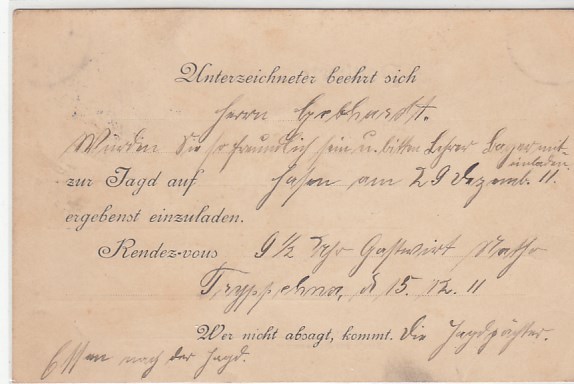 Unterzeichneter beehrt sich
Herrn Gebhardt.
Würden Sie so freundlich sein u. bitten Lehrer Bayer mit
einladen.
zur Jagd auf Hasen am 29 Dezemb. 11.
ergebenst einzuladen.
Rendez-vous 9 1/2 Uhr Gastwirt
Tryppehna, d 15. 12. 11
Wer nicht absagt, kommt. Die Jagdpächter.
Essen nach der Jagd.